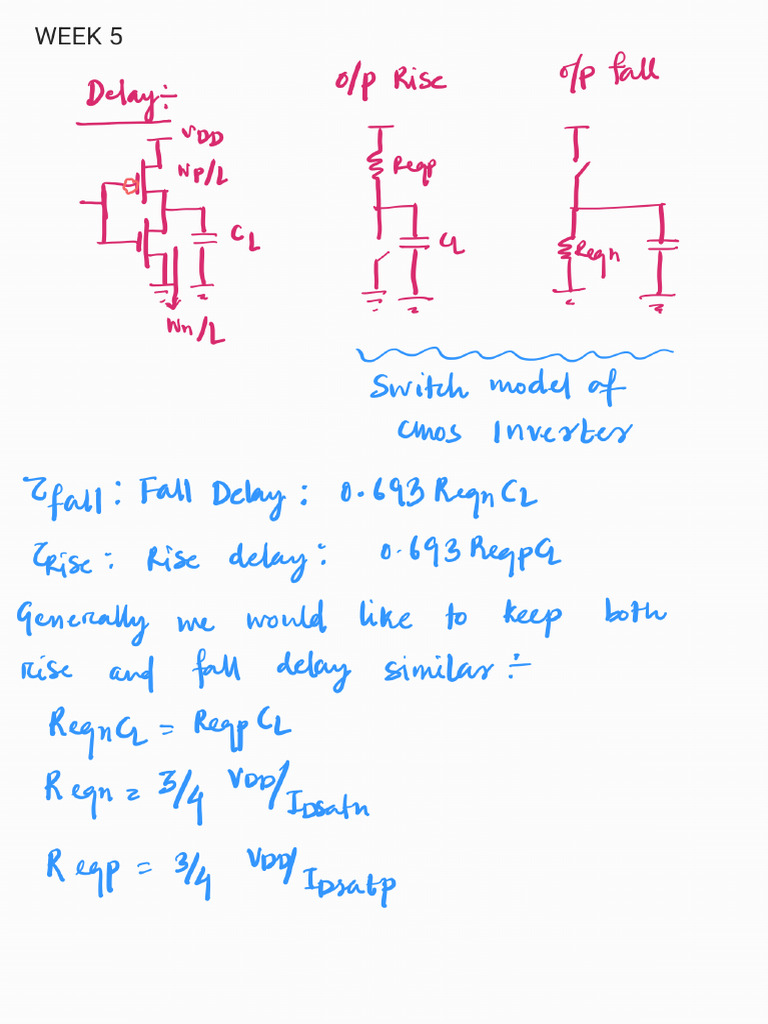 WEEK 5
Delay:-
o/p Rise
o/p fall
VDD
Wp/L
CL
Wn/L
Reqp
CL
Reqn
Switch model of
Cmos Inverter
τfall : Fall Delay : 0.693 Reqn CL
τRise : Rise delay : 0.693 Reqp CL
Generally we would like to keep both
rise and fall delay similar :-
Reqn CL = Reqp CL
Reqn = 3/4 VDD/IDsatn
Reqp = 3/4 VDD/IDsatp